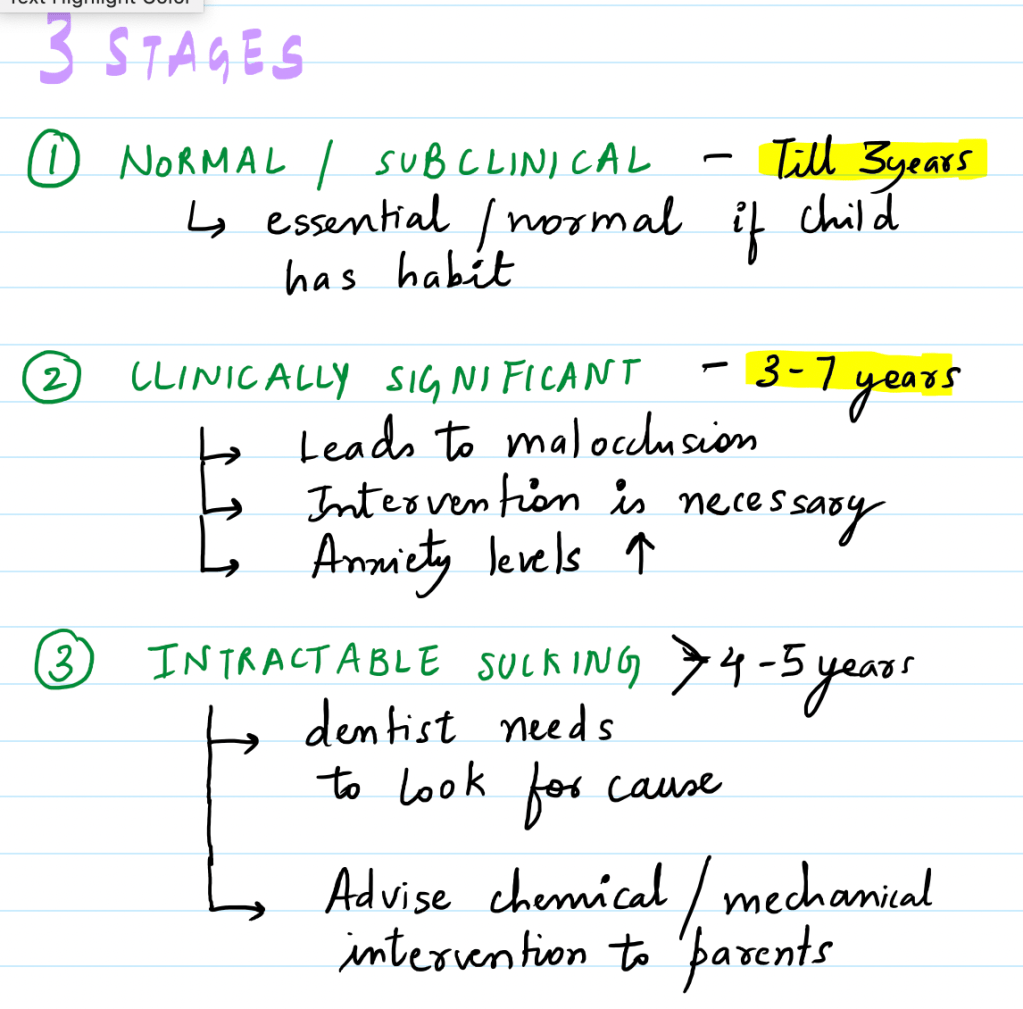 Text Highlight Color
3 STAGES
① NORMAL / SUBCLINICAL - Till 3years
↳ essential / normal if child
has habit
② CLINICALLY SIGNIFICANT - 3-7 years
↳ Leads to malocclusion
↳ Intervention is necessary
↳ Anxiety levels ↑
③ INTRACTABLE SUCKING > 4-5 years
→ dentist needs
to look for cause
↳ Advise chemical / mechanical
intervention to parents